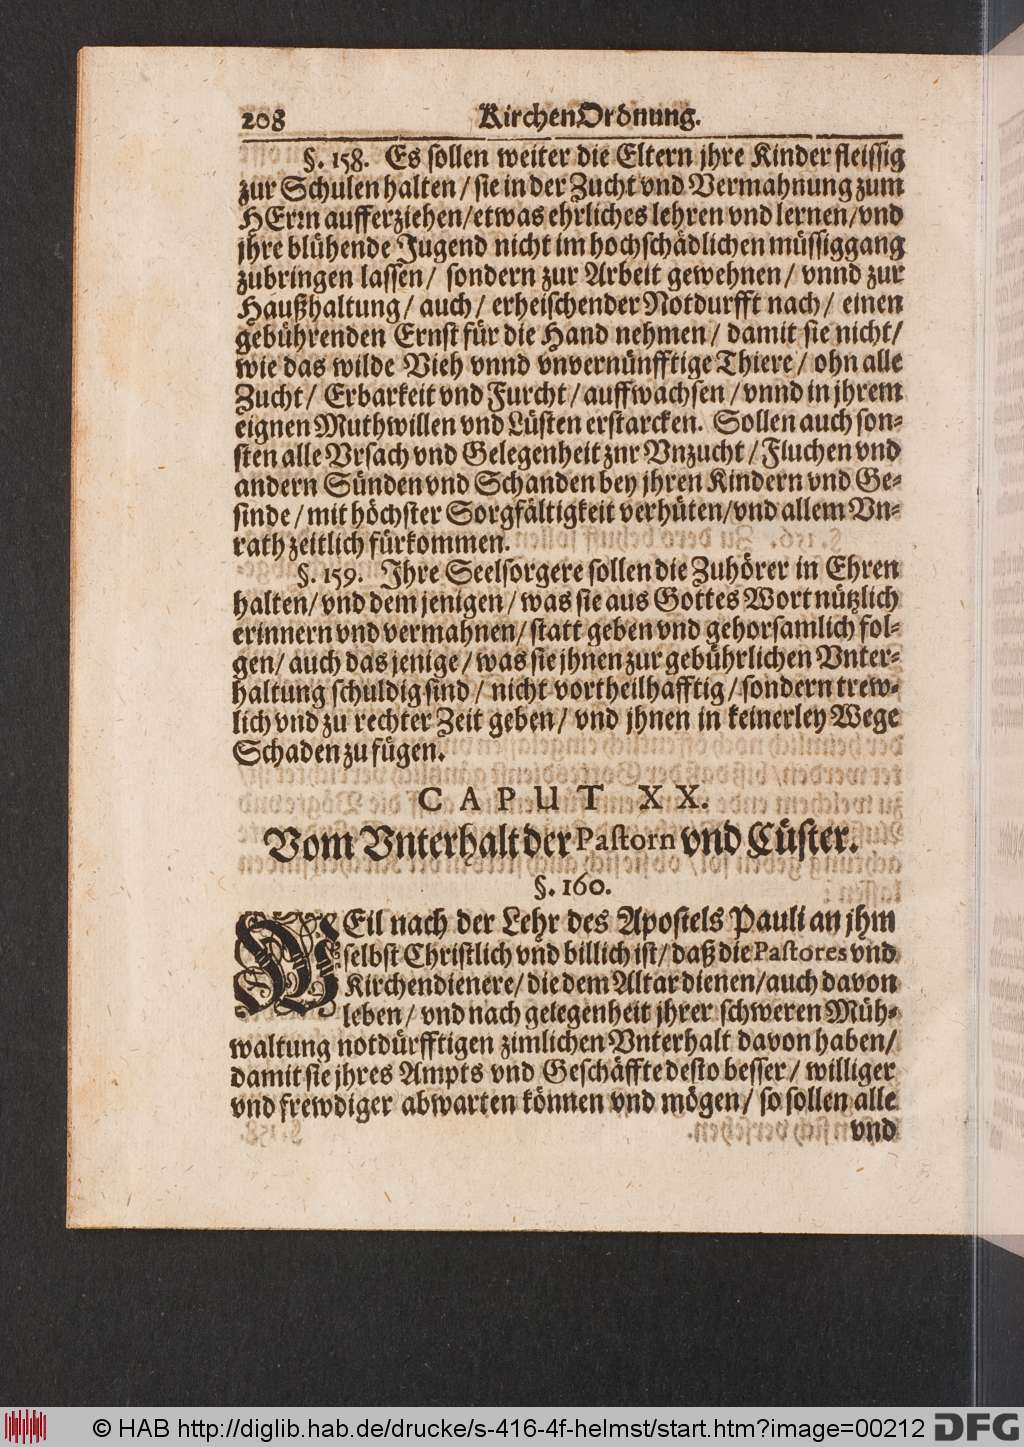 208 KirchenOrdnung.
§. 158. Es sollen weiter die Eltern jhre Kinder fleissig
zur Schulen halten / sie in der Zucht vnd Vermahnung zum
HErrn aufferziehen/etwas ehrliches lehren vnd lernen/vnd
jhre blühende Jugend nicht im hochschädlichen müssiggang
zubringen lassen / sondern zur Arbeit gewehnen / vnnd zur
Haußhaltung / auch / erheischender Notdurfft nach / einen
gebührenden Ernst für die Hand nehmen / damit sie nicht/
wie das wilde Vieh vnnd vnvernünfftige Thiere / ohn alle
Zucht / Erbarkeit vnd Furcht / auffwachsen / vnnd in jhrem
eignen Muthwillen vnd Lüsten erstarcken. Sollen auch son-
sten alle Vrsach vnd Gelegenheit znr Vnzucht / Fluchen vnd
andern Sünden vnd Schanden bey jhren Kindern vnd Ge-
sinde / mit höchster Sorgfältigkeit verhüten/vnd allem Vn-
rath zeitlich fürkommen.
§. 159. Jhre Seelsorgere sollen die Zuhörer in Ehren
halten/ vnd dem jenigen / was sie aus Gottes Wort nützlich
erinnern vnd vermahnen/ statt geben vnd gehorsamlich fol-
gen/ auch das jenige / was sie jhnen zur gebührlichen Vnter-
haltung schuldig sind / nicht vortheilhafftig / sondern trew-
lich vnd zu rechter Zeit geben / vnd jhnen in keinerley Wege
Schaden zu fügen.
CAPUT XX.
Vom Vnterhalt der Pastorn vnd Cüster.
§. 160.
WEil nach der Lehr des Apostels Pauli an jhm
selbst Christlich vnd billich ist/ daß die Pastores vnd
Kirchendienere/ die dem Altar dienen/auch davon
leben / vnd nach gelegenheit jhrer schweren Müh-
waltung notdürfftigen zimlichen Vnterhalt davon haben/
damit sie jhres Ampts vnd Geschäffte desto besser / williger
vnd frewdiger abwarten können vnd mögen / so sollen alle
vnd
© HAB http://diglib.hab.de/drucke/s-416-4f-helmst/start.htm?image=00212 DFG